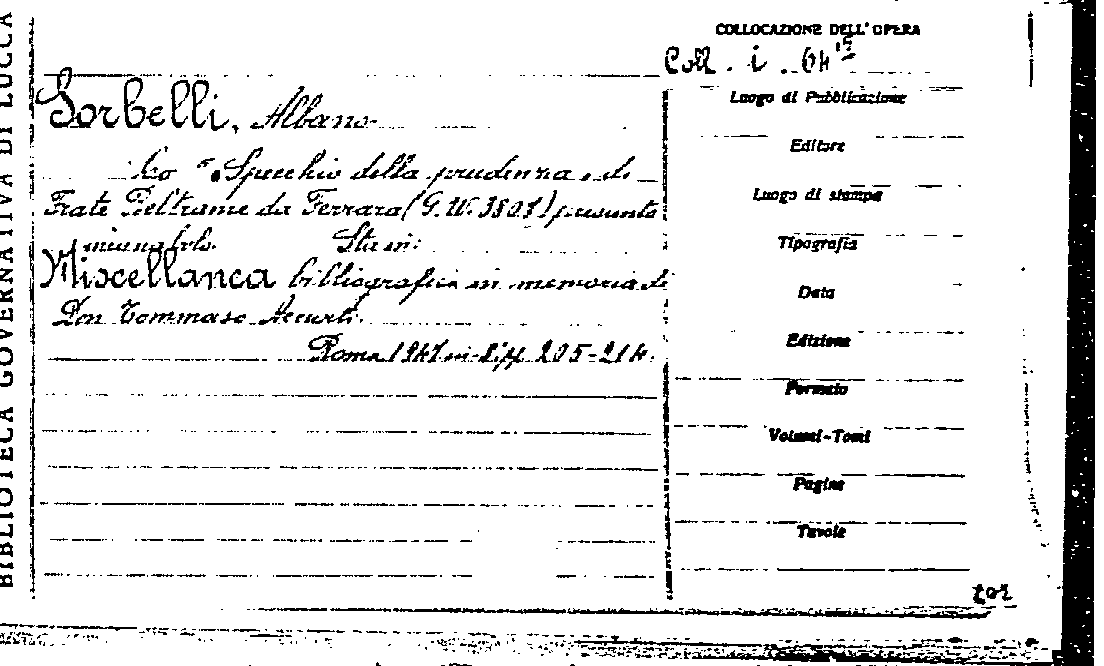 BIBLIOTECA GOVERNATIVA DI LUCCA
COLLOCAZIONE DELL' OPERA
Coll. i. 64
Sorbelli, Albano
Lo "Specchio della prudenza" di
Frate Beltrame da Ferrara (G.W. 3807) presunto
Sta in:
Miscellanea bibliografica in memoria di
Don Tommaso Accurti.
Roma 1947 in-8° pp 205-214.
Luogo di Pubblicazione
Editore
Luogo di stampa
Tipografia
Data
Edizione
Formato
Volumi-Tomi
Pagine
Tavole